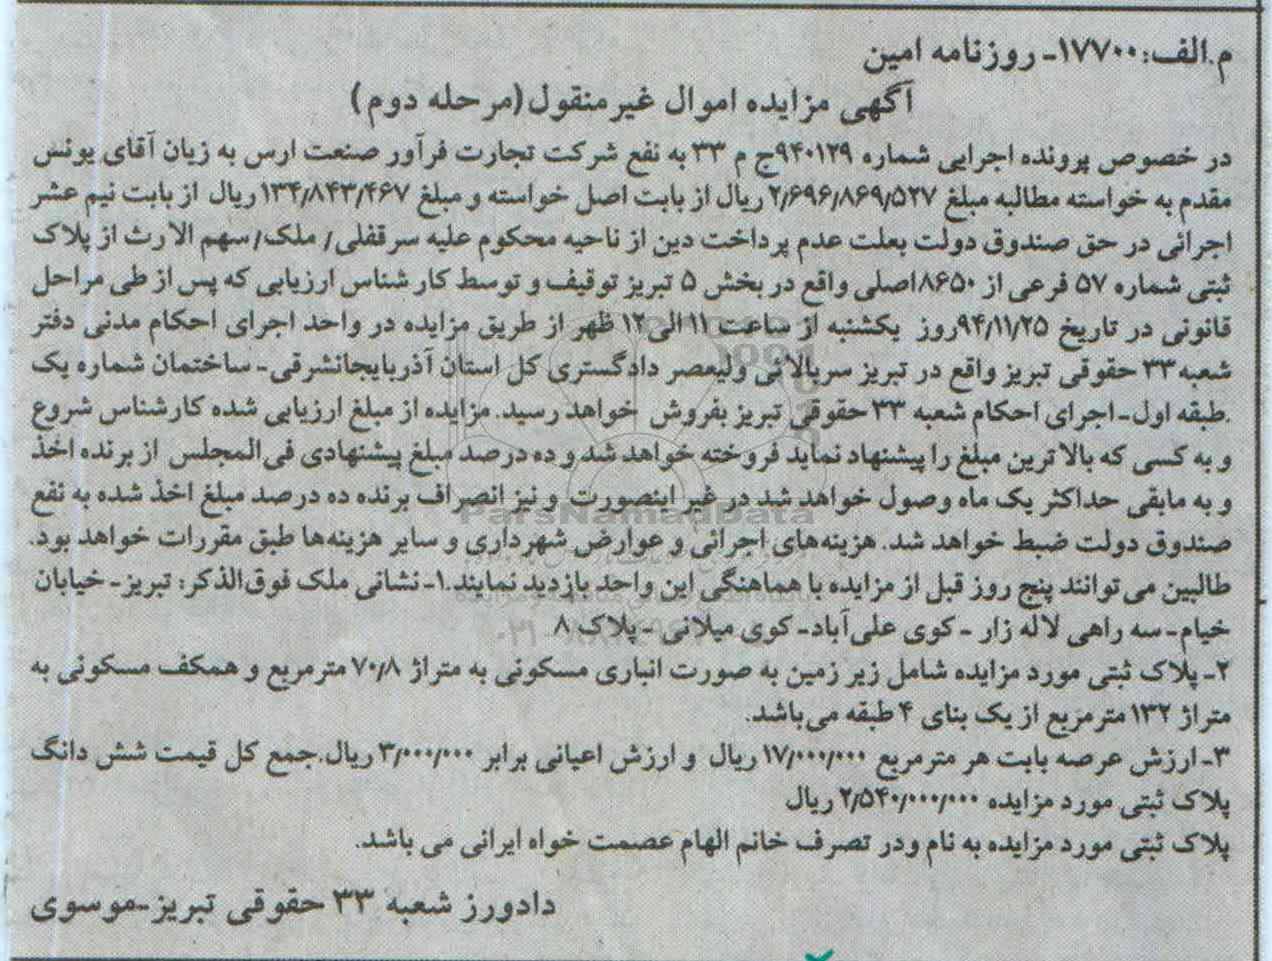 م.الف:۱۷۷۰۰ـ روزنامه امین
آگهی مزایده اموال غیرمنقول(مرحله دوم)
در خصوص پرونده اجرایی شماره ۹۴۰۱۲۹ج م ۳۳ به نفع شرکت تجارت فرآور صنعت ارس به زیان آقای یونس
مقدم به خواسته مطالبه مبلغ ۲/۶۹۶/۸۶۹/۵۲۷ ریال از بابت اصل خواسته و مبلغ ۱۳۴/۸۴۳/۴۶۷ ریال از بابت نیم عشر
اجرائی در حق صندوق دولت بعلت عدم پرداخت دین از ناحیه محکوم علیه سرقفلی/ ملک/سهم الارث از پلاک
ثبتی شماره ۵۷ فرعی از ۸۶۵۰اصلی واقع در بخش ۵ تبریز توقیف و توسط کارشناس ارزیابی که پس از طی مراحل
قانونی در تاریخ ۹۴/۱۱/۲۵روز یکشنبه از ساعت ۱۱ الی۱۲ ظهر از طریق مزایده در واحد اجرای احکام مدنی دفتر
شعبه۳۳ حقوقی تبریز واقع در تبریز سربالائی ولیعصر دادگستری کل استان آذربایجانشرقی- ساختمان شماره یک
.طبقه اول-اجرای احکام شعبه ۳۳ حقوقی تبریز بفروش خواهد رسید.مزایده از مبلغ ارزیابی شده کارشناس شروع
و به کسی که بالاترین مبلغ را پیشنهاد نماید فروخته خواهد شد و ده درصد مبلغ پیشنهادی فی‌المجلس از برنده اخذ
و به مابقی حداکثر یک ماه وصول خواهد شد در غیر اینصورت و نیز انصراف برنده ده درصد مبلغ اخذ شده به نفع
صندوق دولت ضبط خواهد شد. هزینه‌های اجرائی و عوارض شهرداری و سایر هزینه‌ها طبق مقررات خواهد بود.
طالبین می‌توانند پنج روز قبل از مزایده با هماهنگی این واحد بازدید نمایند.۱-نشانی ملک فوق‌الذکر: تبریز-خیابان
خیام-سه راهی لاله زار -کوی علی‌آباد-کوی میلانی -پلاک ۸
۲-پلاک ثبتی مورد مزایده شامل زیر زمین به صورت انباری مسکونی به متراژ ۷۰/۸ مترمربع و همکف مسکونی به
متراژ ۱۳۲ مترمربع از یک بنای ۴ طبقه می‌باشد.
۳-ارزش عرصه بابت هر مترمربع ۱۷/۰۰۰/۰۰۰ ریال و ارزش اعیانی برابر ۳/۰۰۰/۰۰۰ ریال.جمع کل قیمت شش دانگ
پلاک ثبتی مورد مزایده ۲/۵۴۰/۰۰۰/۰۰۰ ریال
پلاک ثبتی مورد مزایده به نام ودر تصرف خانم الهام عصمت خواه ایرانی می باشد.
دادورز شعبه ۳۳ حقوقی تبریز-موسوی
ParsNamadData